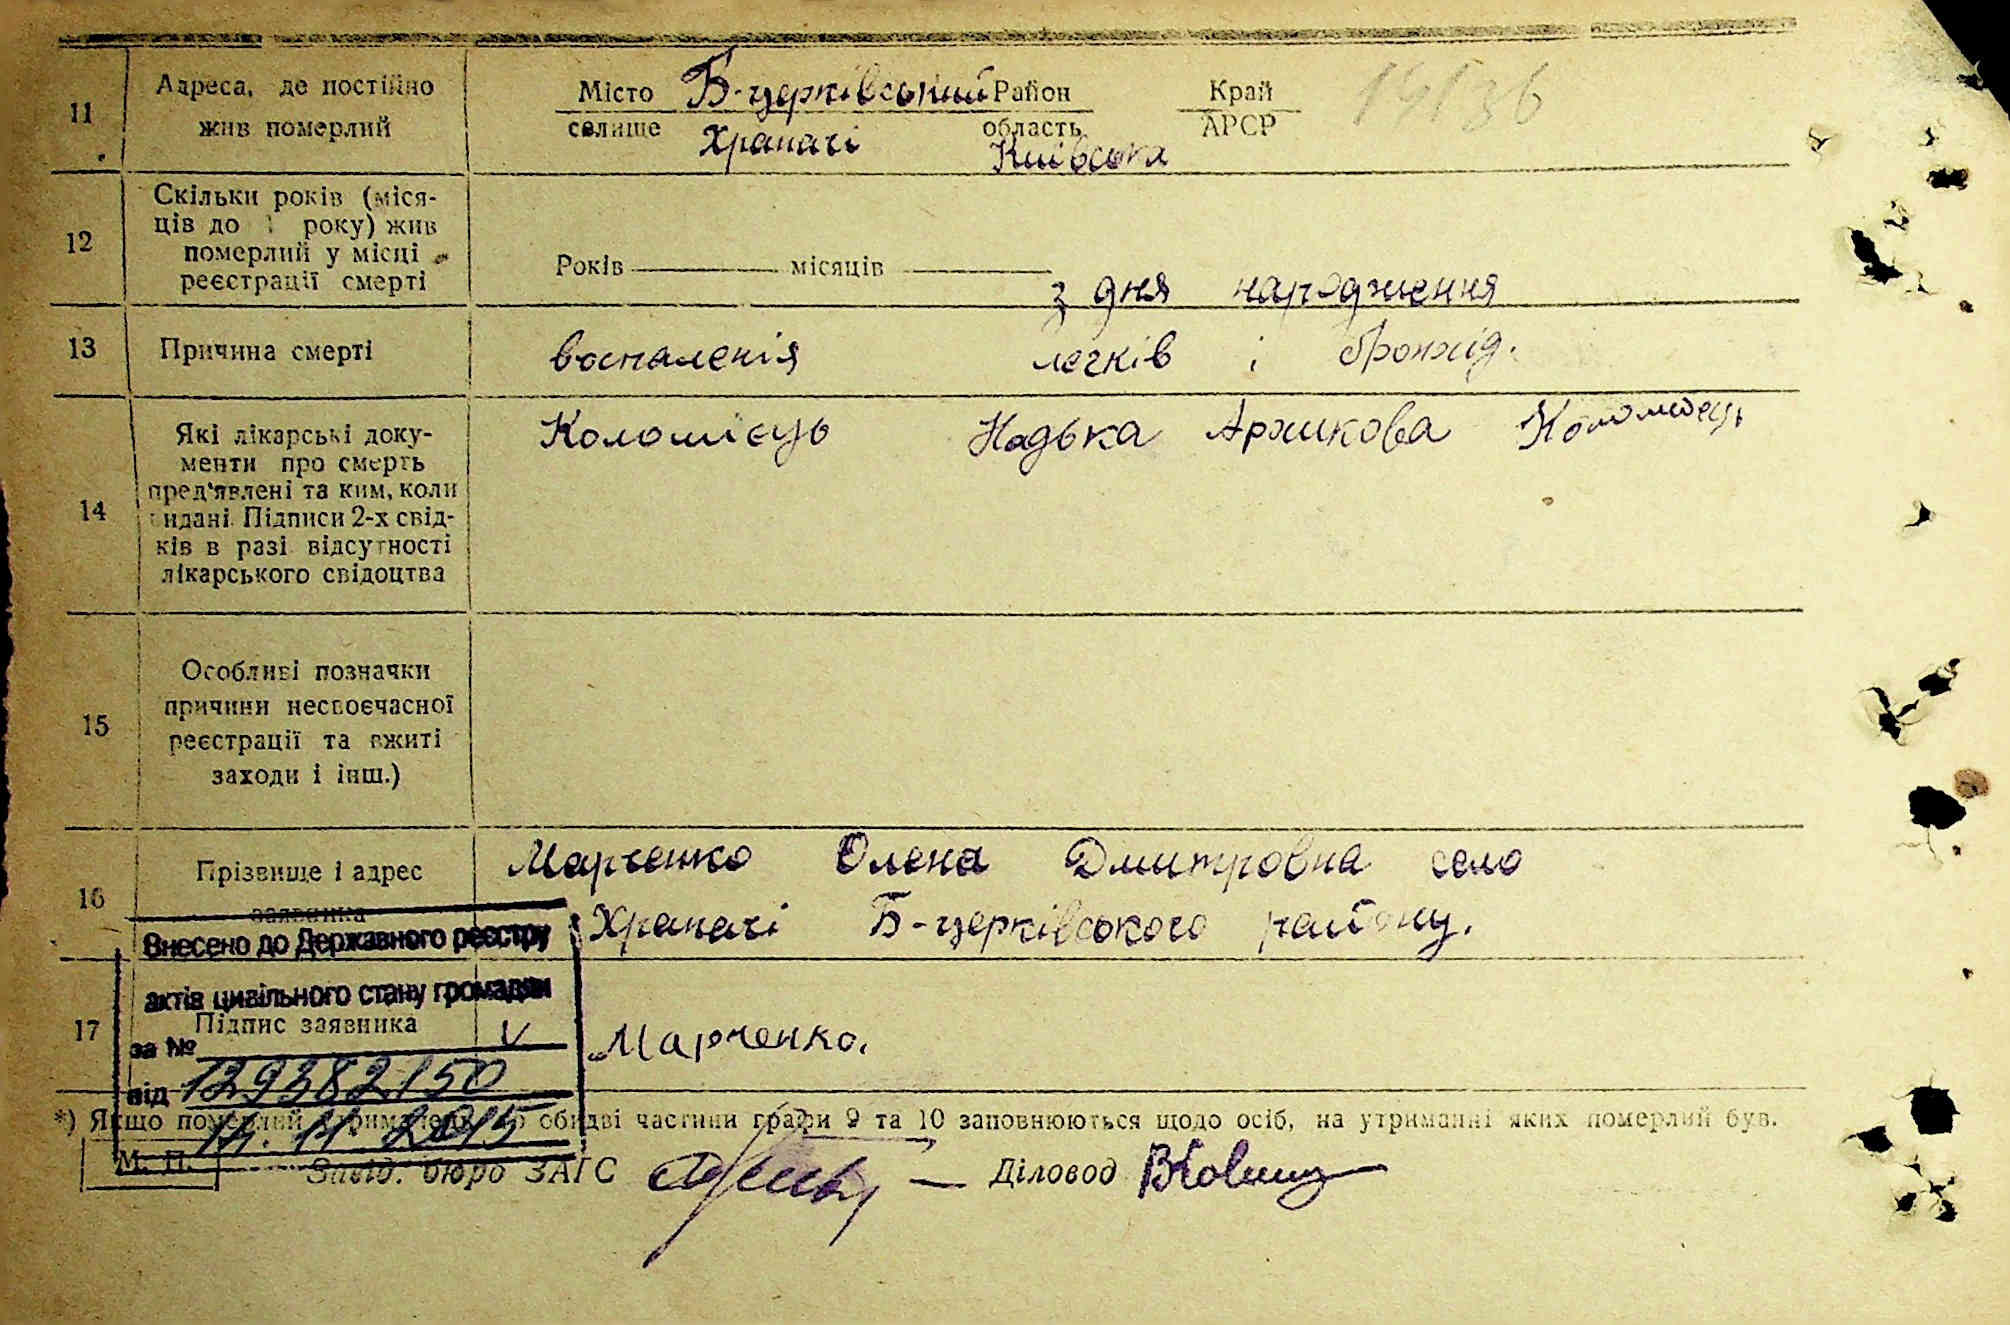 11 Адреса, де постійно жив померлий
Місто Б-церківський Район Край
селище Храпачі область Київська АРСР
14/36
12 Скільки років (міся-
ців до 1 року) жив
померлий у місці
реєстрації смерті
Років місяців
з дня народження
13 Причина смерті
воспаленія легків і бронхід.
14 Які лікарські доку-
менти про смерть
пред'явлені та ким, коли
видані. Підписи 2-х свід-
ків в разі відсутності
лікарського свідоцтва
Коломієць Надька Коломієць
15 Особливі позначки
причини несвоєчасної
реєстрації та вжиті
заходи і інш.)
16 Прізвище і адрес
заявника
Марченко Олена Дмитровна село
Храпачі Б-церківського району.
17 Підпис заявника
V Марченко.
Внесено до Державного реєстру
актів цивільного стану громадян
за № 129382150
від 14.11.2015
*) Якщо померлий обидві частини графи 9 та 10 заповнюються щодо осіб, на утриманні яких померлий був.
М. П.
Завід. бюро ЗАГС Діловод